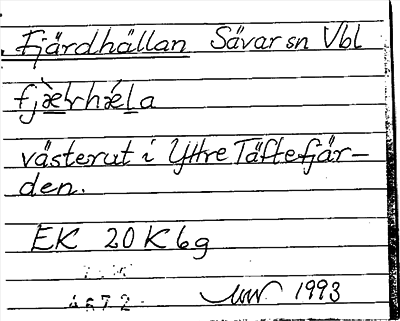 Fjärdhällan Sävar sn Vbl
fjæ̀rhǽla
västerut i Yttre Täftefjär-
den.
EK 20K6g
4672
1993